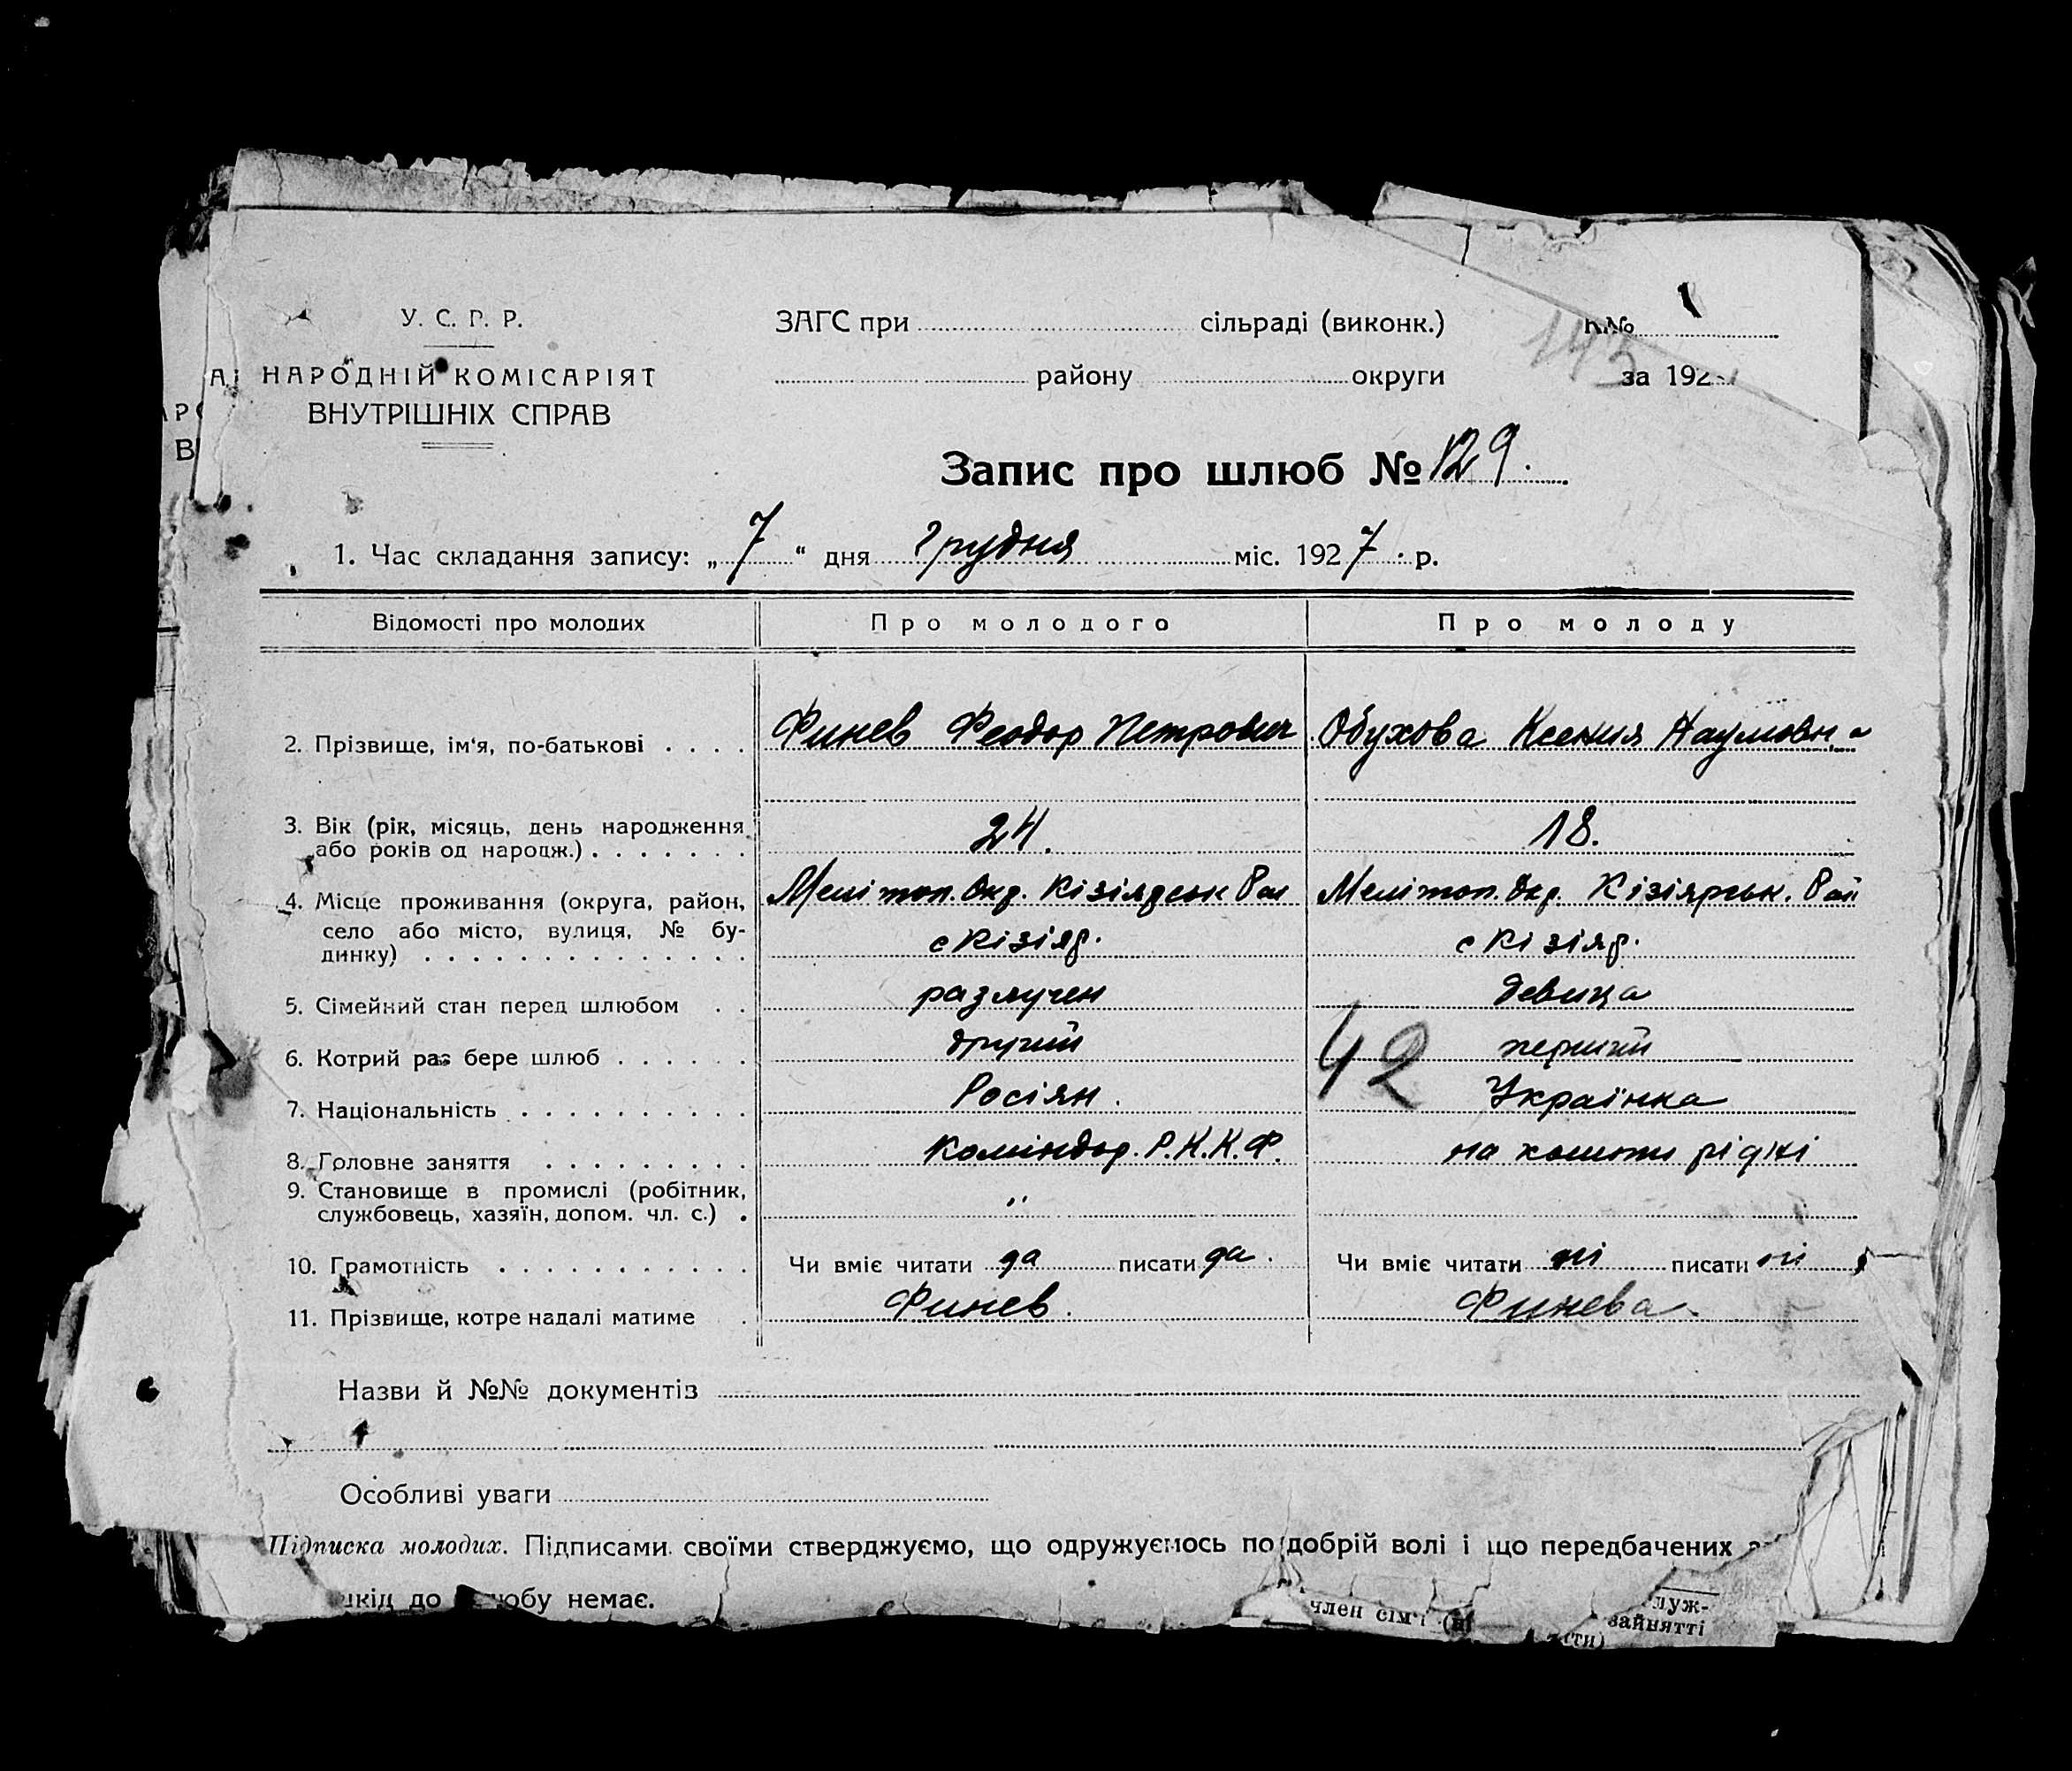 У. С. Р. Р.
НАРОДНІЙ КОМІСАРІЯТ
ВНУТРІШНІХ СПРАВ
ЗАГС при сільраді (виконк.)
району округи
№
143
за 192
Запис про шлюб № 129.
1. Час складання запису: „7“ дня Грудня міс. 1927 р.
Відомості про молодих Про молодого Про молоду
2. Прізвище, ім'я, по-батькові . . . . Финев Феодор Петрович Обухова Ксения Наумовна
3. Вік (рік, місяць, день народження
або років од народж.) . . . . . . . 24. 18.
4. Місце проживання (округа, район, Мелітоп. Окр. Кізіярськ Рай Мелітоп. Окр. Кізіярськ. Рай
село або місто, вулиця, № бу- с Кізіяр. с Кізіяр.
динку) . . . . . . . . . . . . . .
5. Сімейний стан перед шлюбом . . разлучен девица
6. Котрий раз бере шлюб . . . . . . другий перший
42
7. Національність . . . . . . . . . . Росіян. Українка
8. Головне заняття . . . . . . . . . на кошти рідні
9. Становище в промислі (робітник,
службовець, хазяїн, допом. чл. с.) . "
10. Грамотність . . . . . . . . . . . Чи вміє читати да писати да. Чи вміє читати ні писати ні
11. Прізвище, котре надалі матиме . Финев. Финева.
Назви й №№ документів
Особливі уваги
Підписка молодих. Підписами своїми стверджуємо, що одружуємось по добрій волі і що передбачених
до немає.
член сім'ї
зайнятті